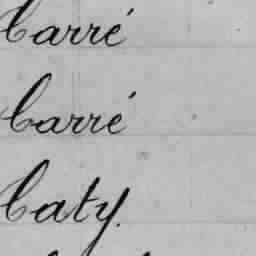 Carré
Carré
Caty.